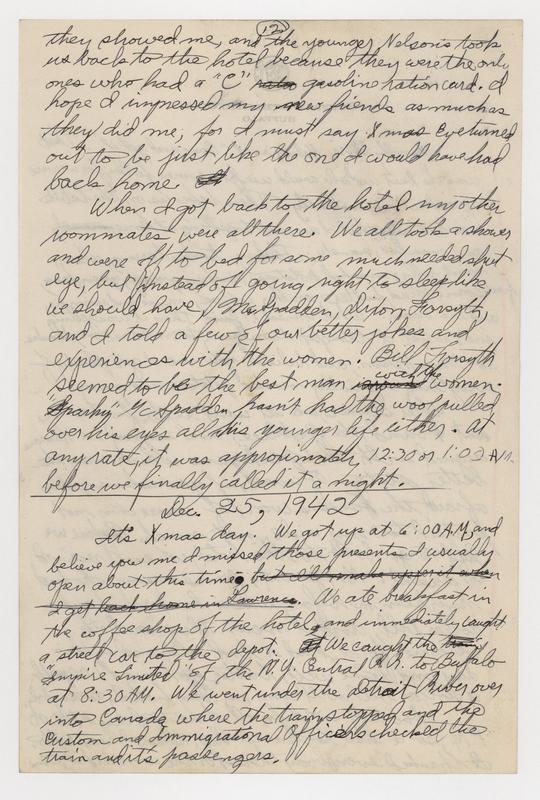 12
they showed me, and the younger Nelsons took
us back to the hotel because they were the only
ones who had a "C" ratio gasoline ration card. I
hope I impressed my new friends as much as
they did me, for I must say Xmas Eve turned
out to be just like the one I would have had
back home.
When I got back to the hotel my other
roommates were all there. We all took a shower
and were off to bed for some much needed shut
eye, but instead of going right to sleep like
we should have, McSpadden, Dixon, Forsyth,
and I told a few of our better jokes and
experiences with the women. Bill Forsyth
seemed to be the best man around with the women.
"Sparky" McSpadden hasn't had the wool pulled
over his eyes all his younger life either. At
any rate, it was approximately 12:30 or 1:00 A.M.
before we finally called it a night.
Dec. 25, 1942
It's Xmas day. We got up at 6:00 A.M. and
believe you me I missed those presents I usually
open about this time. but I'll make up for it when
I get back home in Lawrence. We ate breakfast in
the coffee shop of the hotel, and immediately caught
a street car to the depot. At We caught the train
"Empire Limited" of the N.Y. Central R.R. to Buffalo
at 8:30 A.M. We went under the Detroit River over
into Canada where the train stopped and the
Custom and Immigrational Officers checked the
train and it's passengers.